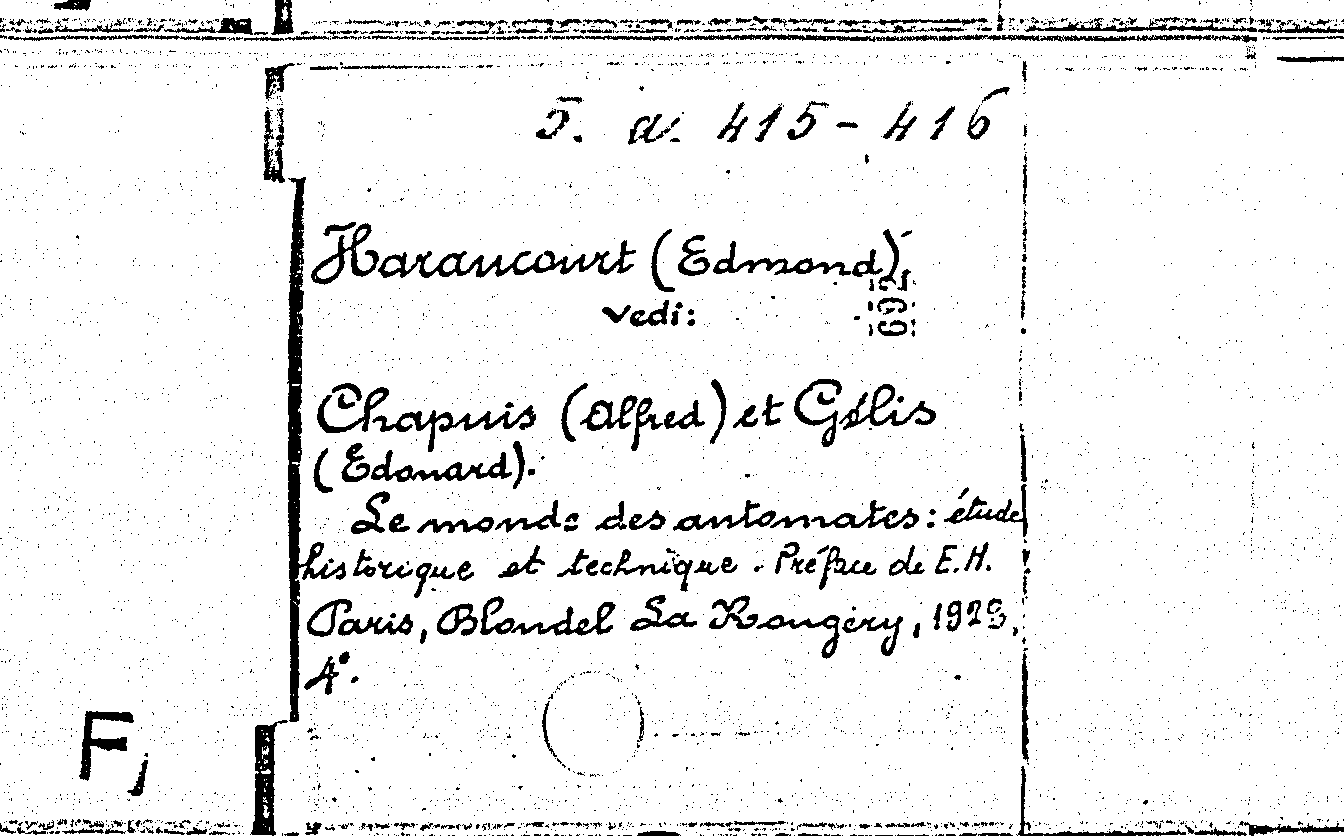 5. a. 415-416
Haraucourt (Edmond),
692
vedi:
Chapuis (Alfred) et Gélis
(Edouard).
Le monde des automates: étude
historique et technique. Préface de E.H.
Paris, Blondel La Rougery, 1928,
4°.
F,